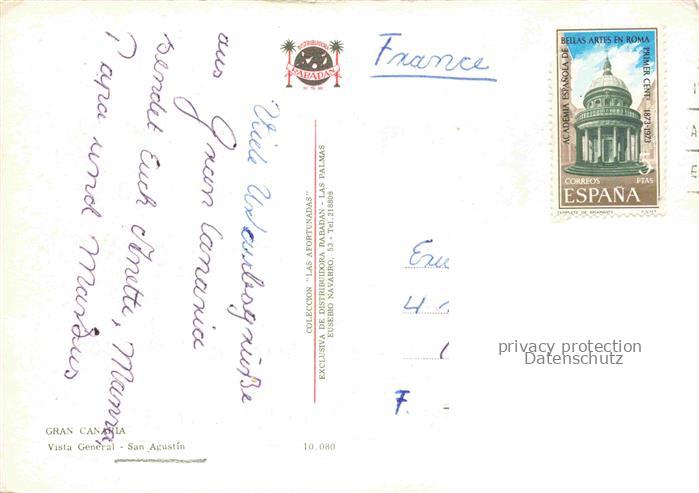 Viele Urlaubsgrüße
aus
Gran Canaria
sendet Euch Anette, Mama,
Papa und Markus
GRAN CANARIA
Vista General - San Agustín
10.080
DISTRIBUIDORA
RABADAN
COLECCION "LAS AFORTUNADAS"
EXCLUSIVA DE DISTRIBUIDORA RABADAN - LAS PALMAS
EUSEBIO NAVARRO, 53 - Tel. 218808
France
ACADEMIA ESPAÑOLA DE
BELLAS ARTES EN ROMA
PRIMER CENT. 1873-1973
5
PTAS
CORREOS
ESPAÑA
TEMPLETE DE BRAMANTE
F.N.M.T.
4
F. -
privacy protection
Datenschutz